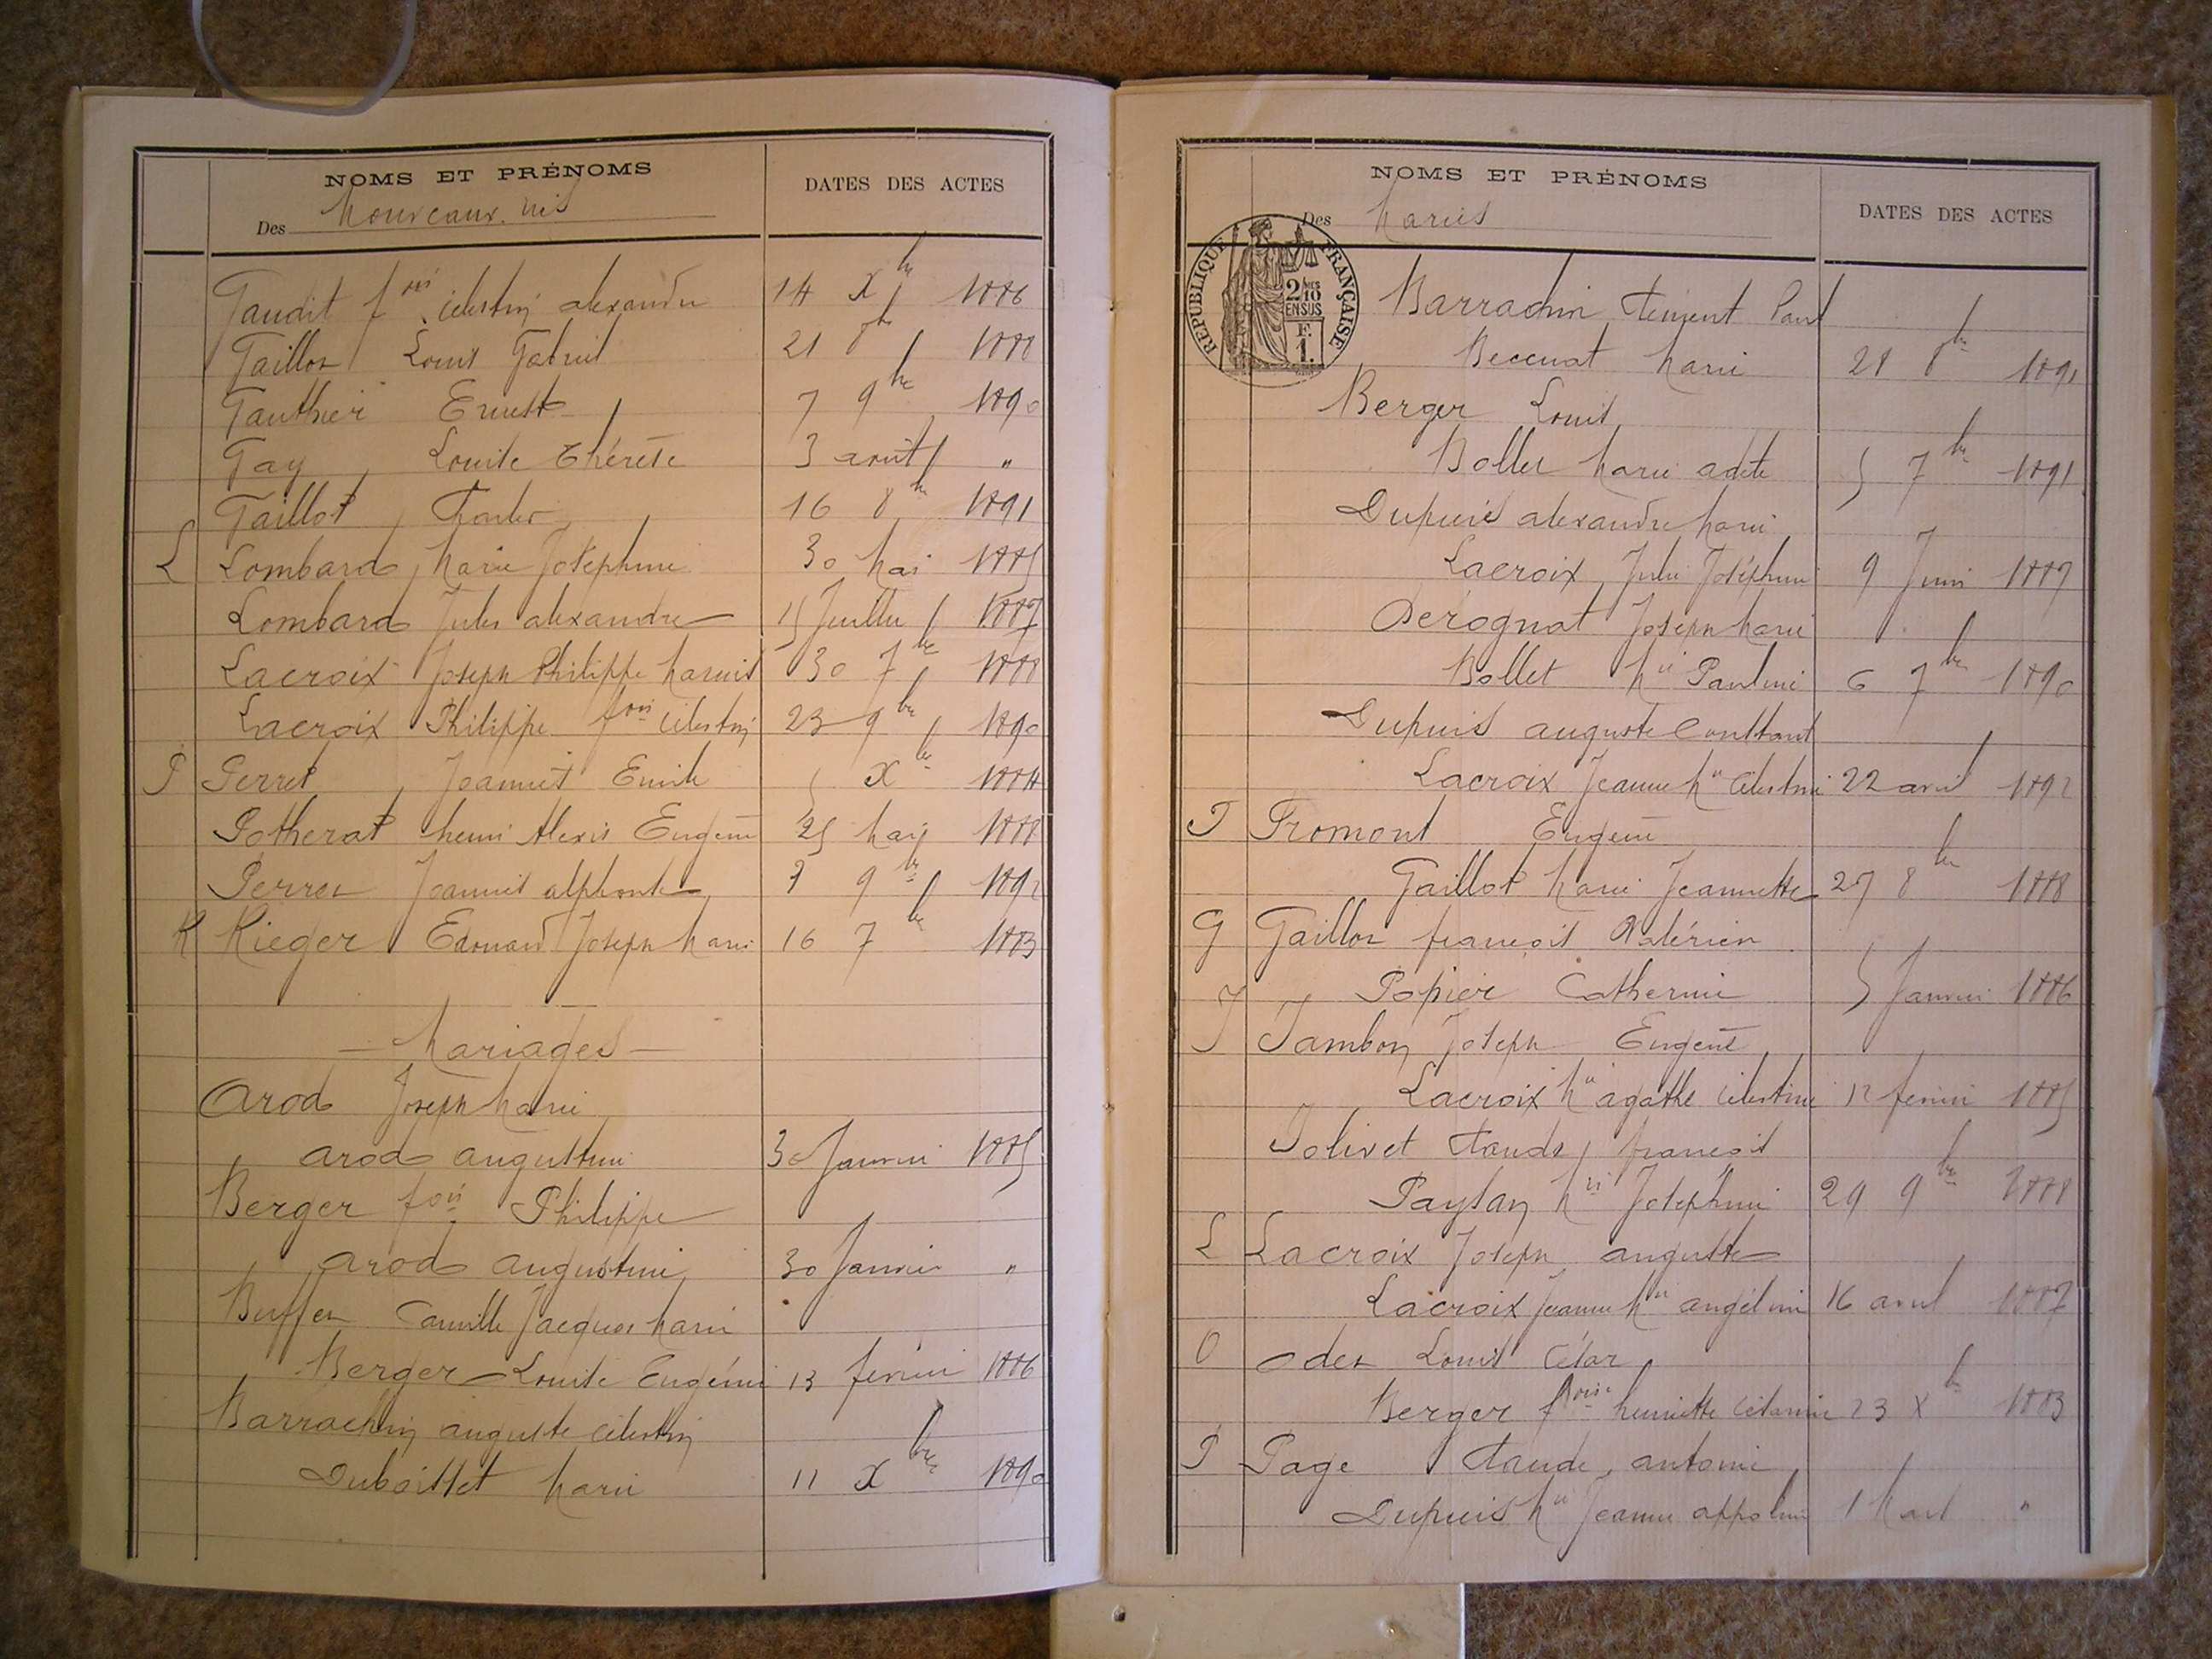 NOMS ET PRÉNOMS
DATES DES ACTES
Des Nouveaux nés
Gaudit fois Célestin alexandre 14 Xbre 1886
Gaillot Louis Gabriel 21 8bre 1888
Gauthier Ernest 7 9bre 1890
Gay Louise Thérèse 3 août "
Gaillot Charles 16 8bre 1891
L Lombard Marie Joséphine 30 Mai 1885
Lombard Jules alexandre 15 Juillet 1887
Lacroix Joseph Philippe Marius 30 7bre 1888
Lacroix Philippe fois Célestin 23 9bre 1890
P Perret Joannès Emile 5 Xbre 1884
Potherat henri Alexis Eugène 25 Mai 1888
Perret Joannès alphonse 9bre 1892
K Kieger Edouard Joseph Marie 16 7bre 1883
— Mariages —
Arod Joseph Marie
Arod augustine 30 Janvier 1885
Berger fois Philippe
Arod augustine 30 Janvier "
Buffet Camille Jacques Marie
Berger Louise Eugénie 13 février 1886
Barrachin auguste Célestin
Duboisset Marie 11 Xbre 1890
NOMS ET PRÉNOMS
DATES DES ACTES
Des Mariés
REPUBLIQUE FRANÇAISE
2/10 MES
EN SUS
F.
1.
Barrachin Clément Paul
Beccuat Marie 28 8bre 1891
Berger Louis
Bollet Marie adèle 5 7bre 1891
Dupuis alexandre Marie
Lacroix Julie Joséphine 9 Juin 1887
Derognat Joseph Marie
Bollet Mie Pauline 6 7bre 1890
Dupuis auguste Constant
Lacroix Jeanne Mie Célestine 22 avril 1892
F Fromont Eugène
Gaillot Marie Jeannette 27 8bre 1888
G Gaillot françois Valérien
Popier Catherine 5 Janvier 1886
J Jambon Joseph Eugène
Lacroix Mie agathe Célestine 12 février 1885
Jolivet Claude françois
Paylan Mie Joséphine 29 9bre 1888
L Lacroix Joseph auguste
Lacroix Jeanne Mie angéline 16 avril 1887
O Odet Louis César
Berger foise henriette Césarine 23 Xbre 1883
P Page Claude antoine
Dupuis Mie Jeanne appoline 1 Mars "